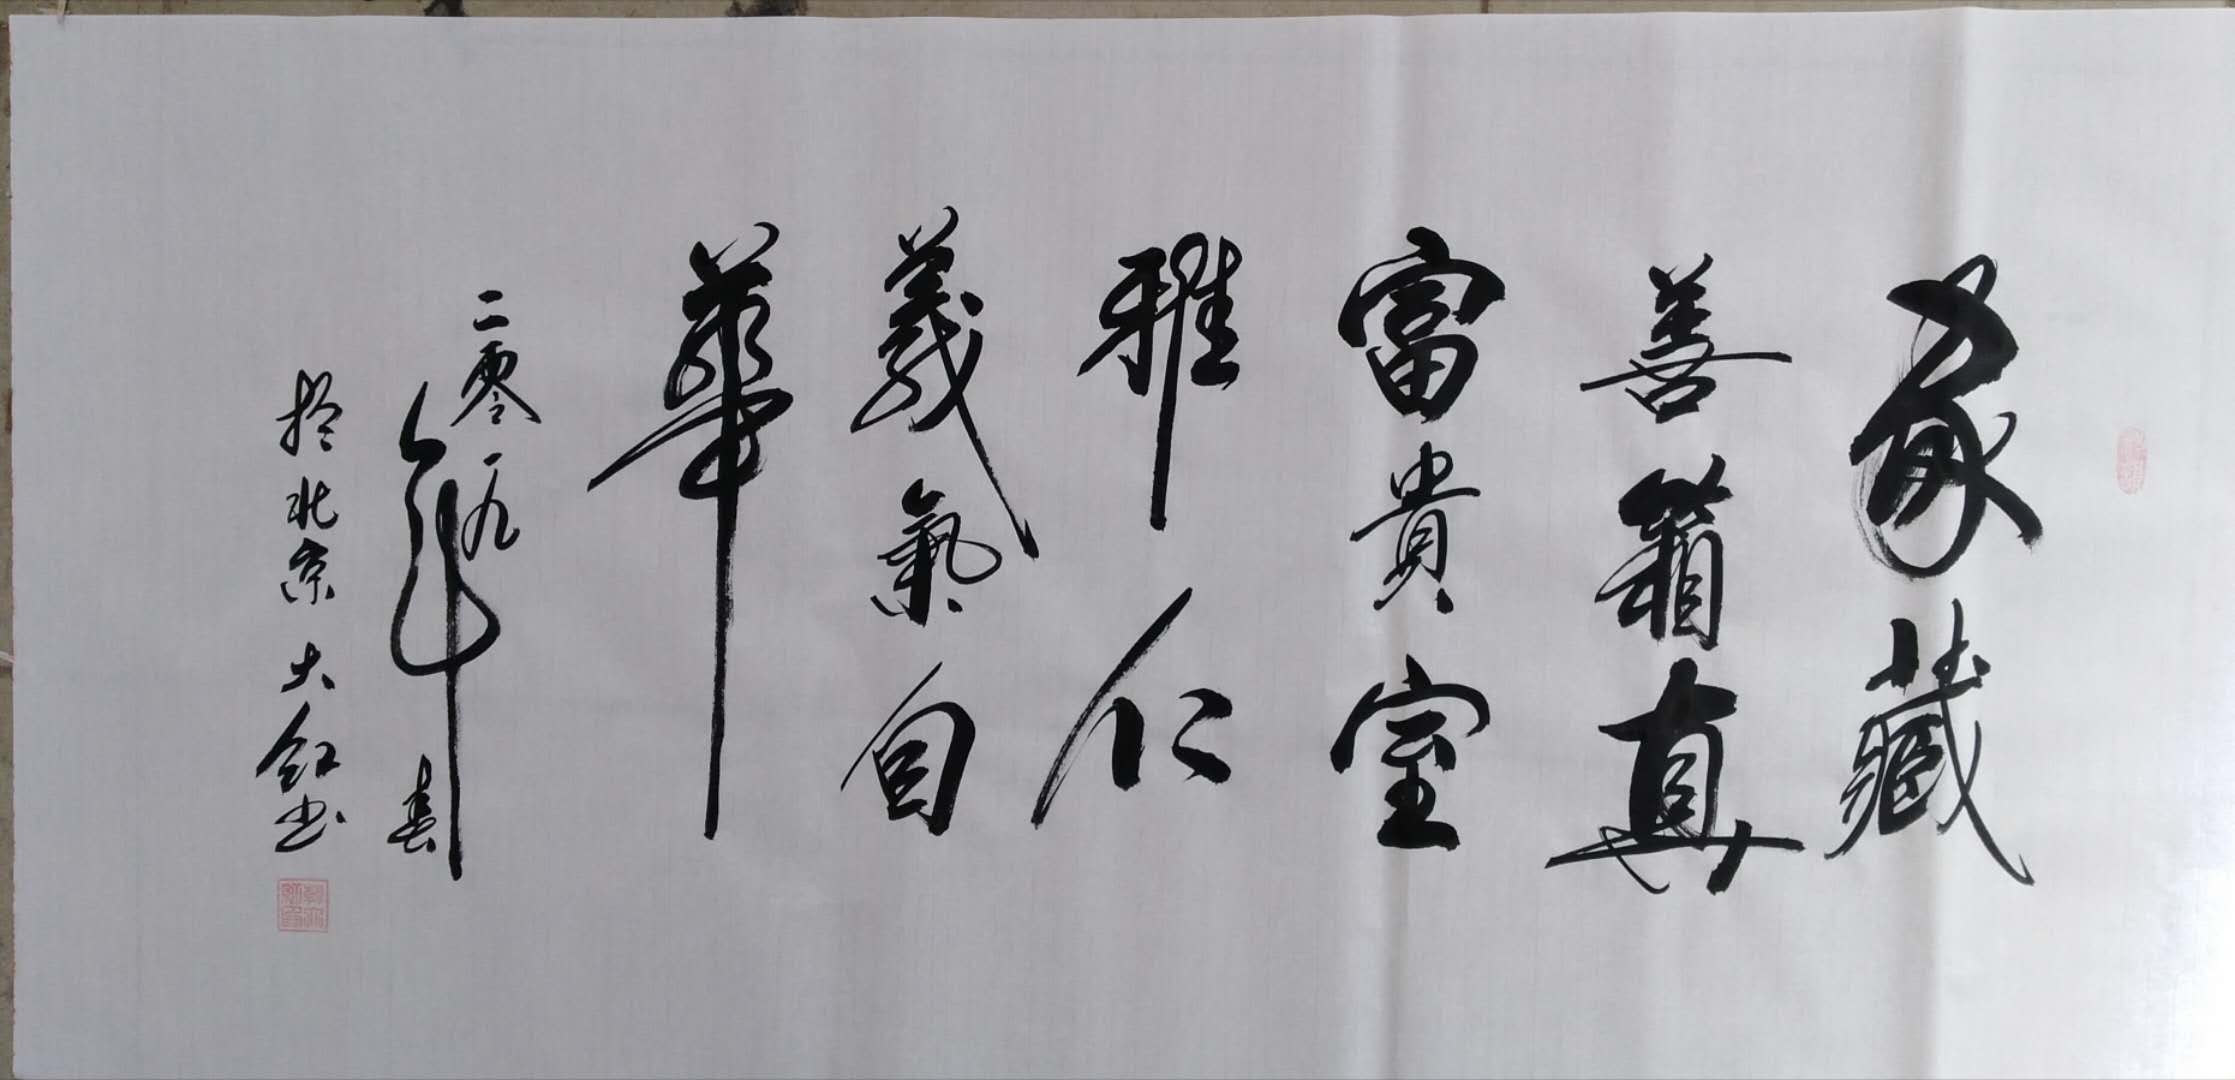 家藏
善籍真
富貴室
雅仁
義氣自
華
二零一九年春
於北京大书